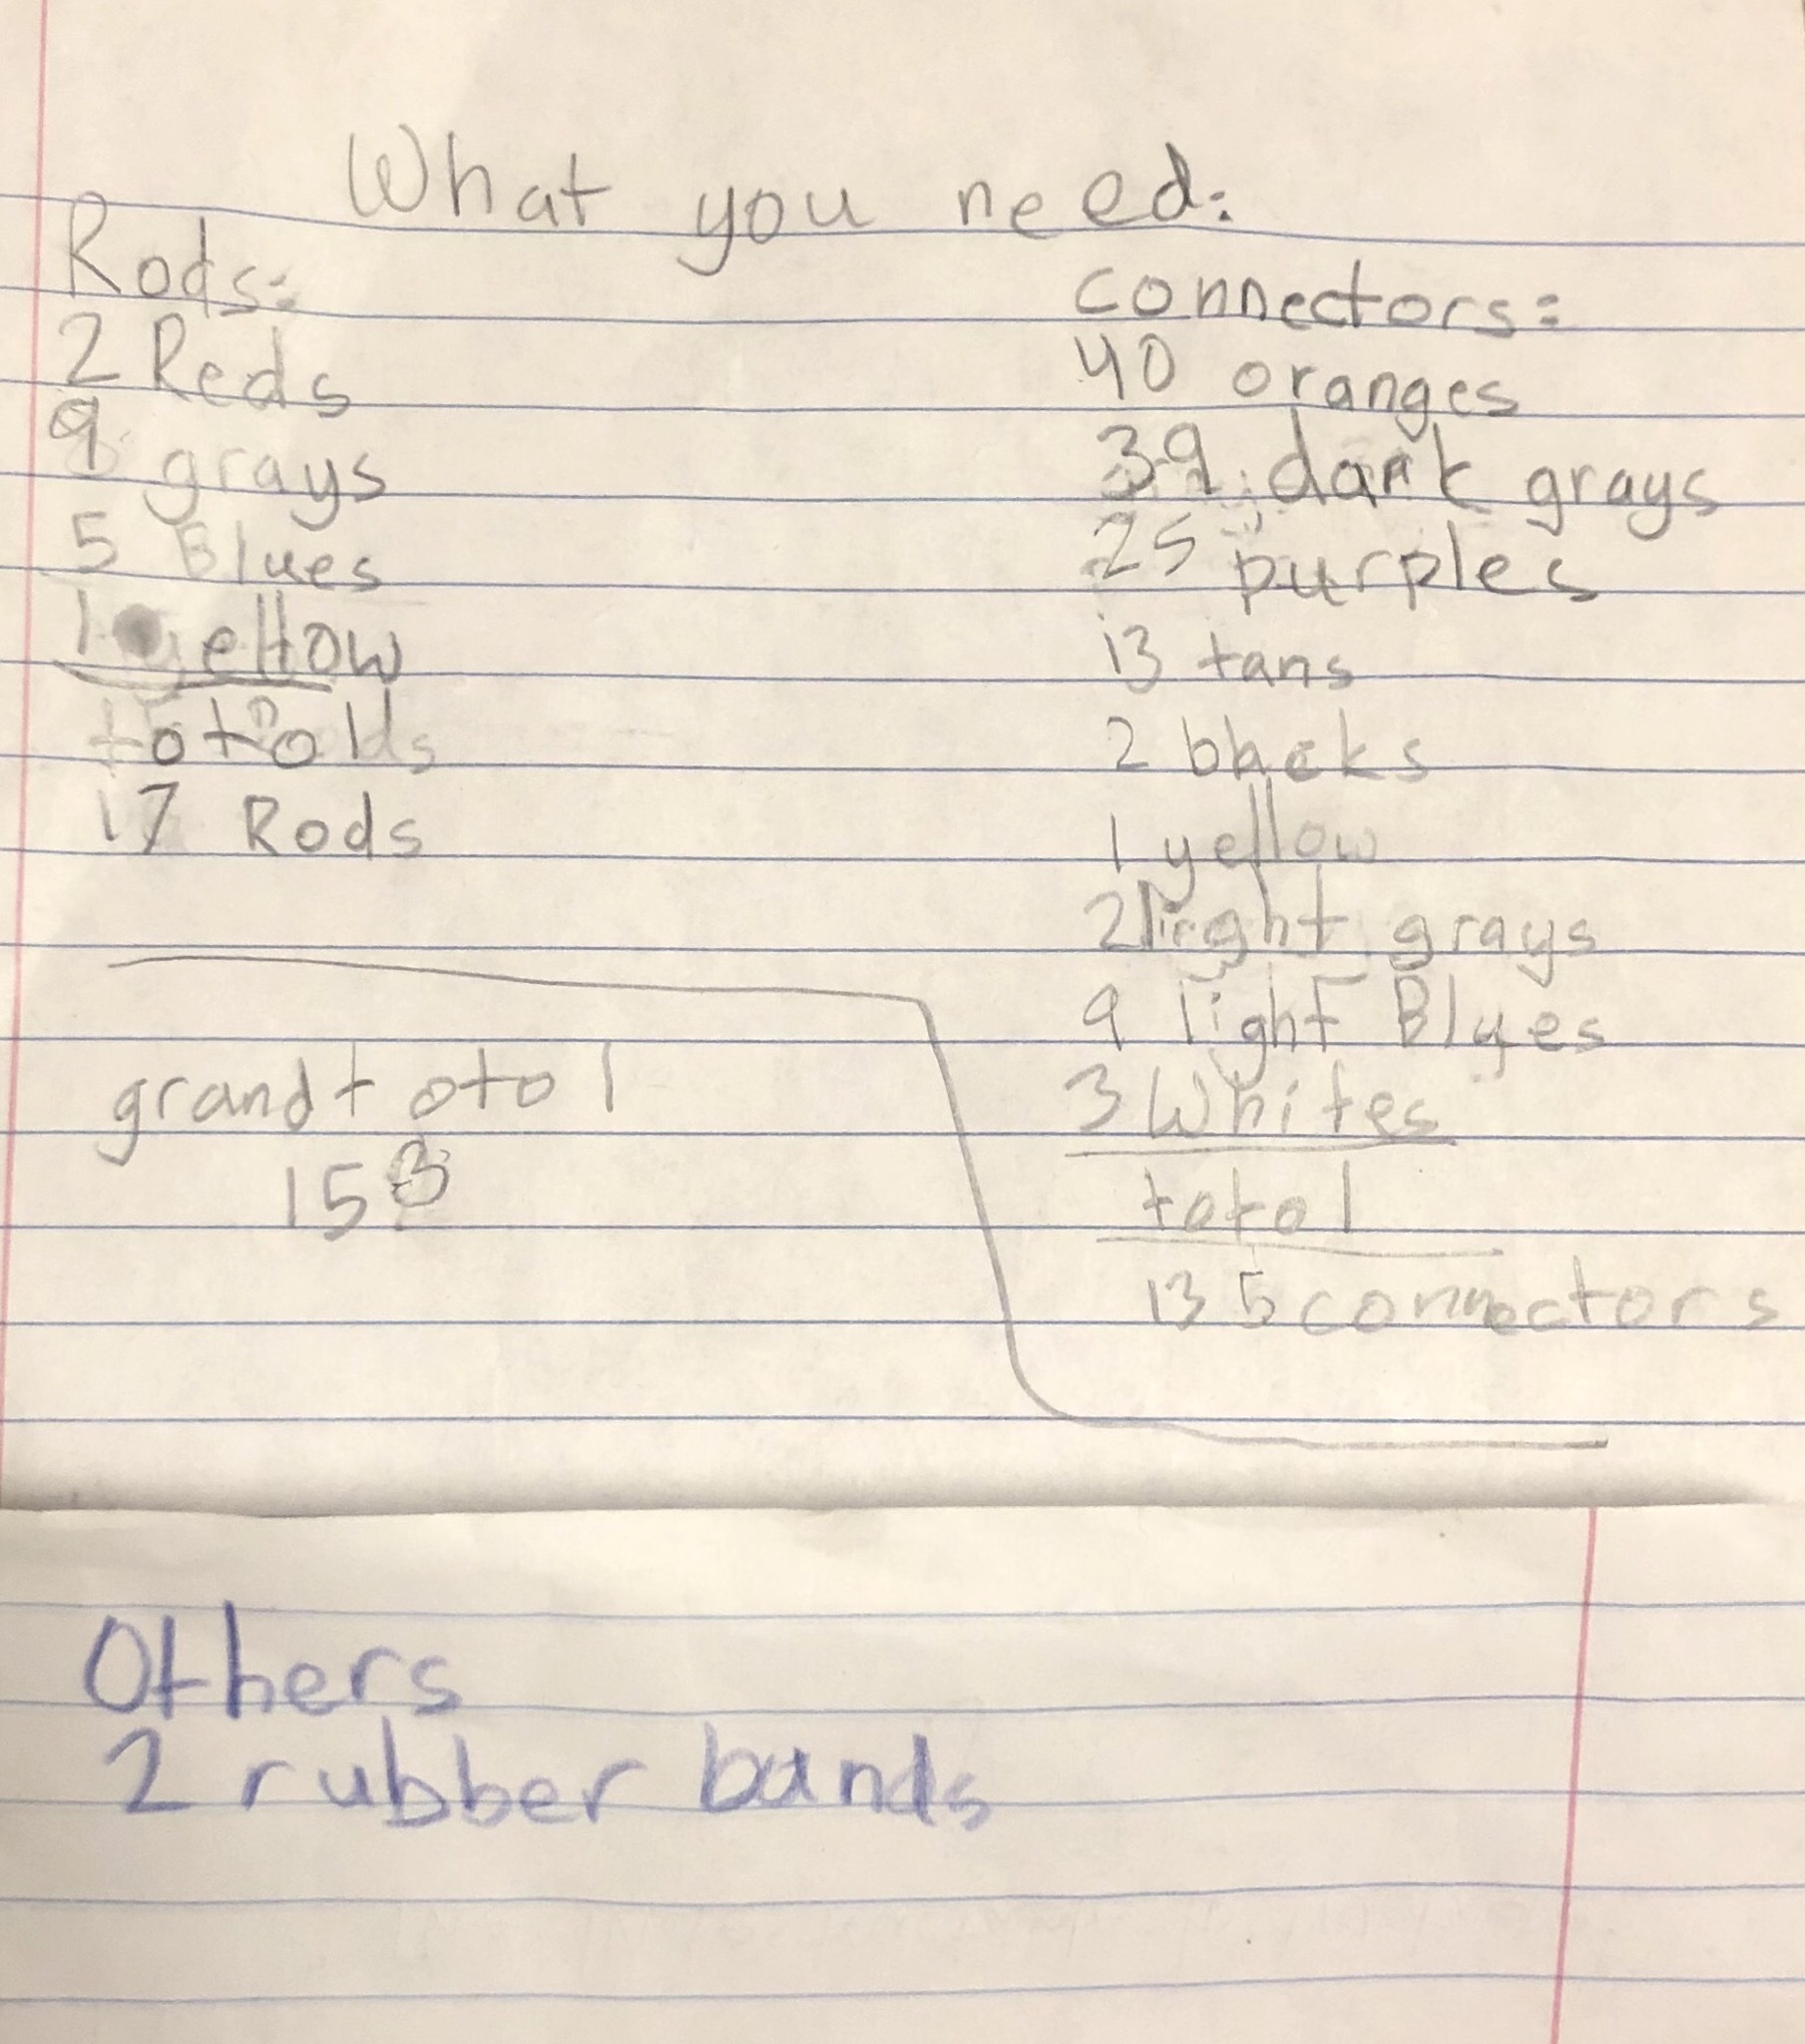 What you need:
Rods:
2 Reds
9 grays
5 Blues
1 yellow
17 Rods
connectors:
40 oranges
39 dark grays
25 purples
13 tans
2 backs
1 yellow
2 light grays
9 light Blues
3 Whites
totol
135 connectors
grand totol
153
Others
2 rubber bands